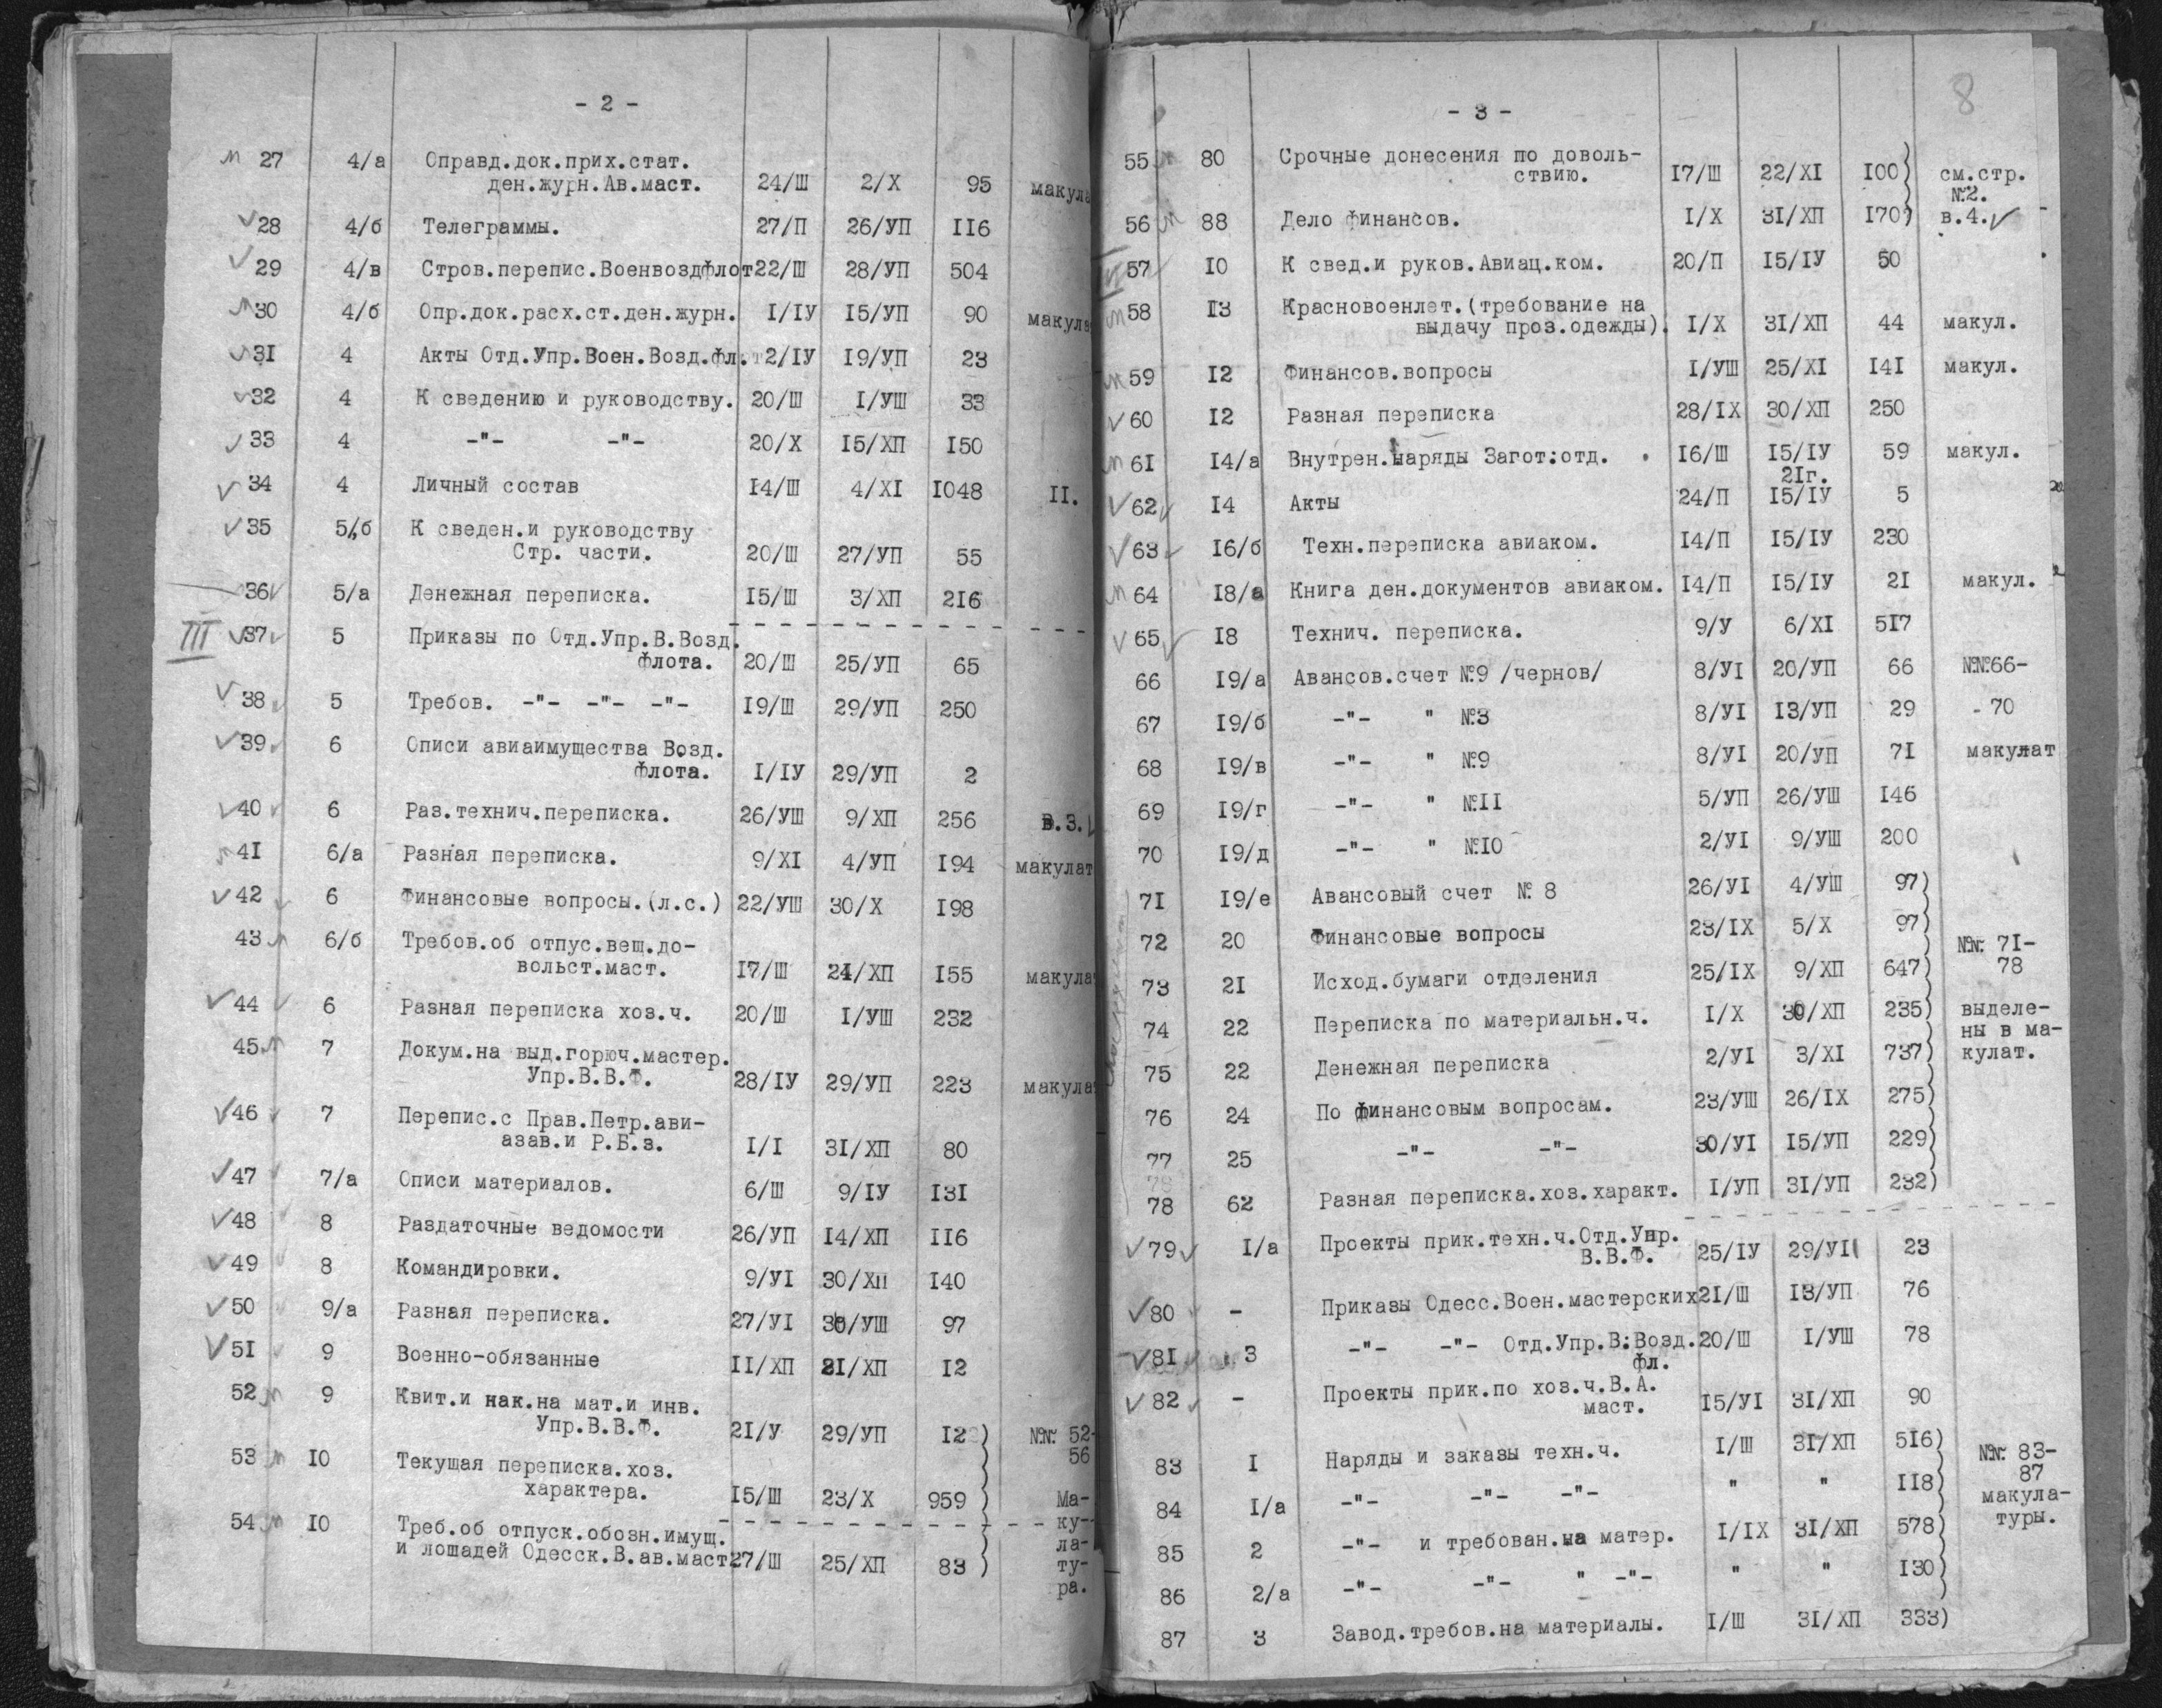 - 2 -
27 4/а Оправд.док.прих.стат.
ден.журн.Ав.маст. 24/Ш 2/Х 95 макула
28 4/б Телеграммы. 27/П 26/УП II6
29 4/в Стров.перепис.Военвоздфлот 22/Ш 28/УП 504
30 4/б Опр.док.расх.ст.ден.журн. I/IУ I5/УП 90 макула
3I 4 Акты Отд.Упр.Воен.Возд.фл. 2/IУ I9/УП 23
32 4 К сведению и руководству. 20/Ш I/УШ 33
33 4 -"- -"- 20/Х I5/ХП I50
34 4 Личный состав I4/Ш 4/XI I048 II.
35 5/б К сведен.и руководству
Стр. части. 20/Ш 27/УП 55
36 5/а Денежная переписка. I5/Ш 3/ХП 2I6
III 37 5 Приказы по Отд.Упр.В.Возд.
флота. 20/Ш 25/УП 65
38 5 Требов. -"- -"- -"- I9/Ш 29/УП 250
39 6 Описи авиаимущества Возд.
флота. I/IУ 29/УП 2
40 6 Раз.технич.переписка. 26/УШ 9/ХП 256 в.3.
4I 6/а Разная переписка. 9/XI 4/УП I94 макулат
42 6 Финансовые вопросы.(л.с.) 22/УШ 30/Х I98
43 6/б Требов.об отпус.вещ.до-
вольст.маст. I7/Ш 24/ХП I55 макула
44 6 Разная переписка хоз.ч. 20/Ш I/УШ 232
45 7 Докум.на выд.горюч.мастер.
Упр.В.В.Ф. 28/IУ 29/УП 223 макула
46 7 Перепис.с Прав.Петр.ави-
азав.и Р.Б.з. I/I 3I/ХП 80
47 7/а Описи материалов. 6/Ш 9/IУ I3I
48 8 Раздаточные ведомости 26/УП I4/ХП II6
49 8 Командировки. 9/УI 30/ХП I40
50 9/а Разная переписка. 27/УI 30/УШ 97
5I 9 Военно-обязанные II/ХП 3I/ХП I2
52 9 Квит.и нак.на мат.и инв.
Упр.В.В.Ф. 2I/У 29/УП I2 ) №№ 52-
56
53 I0 Текущая переписка.хоз.
характера. I5/Ш 23/Х 959 ) Ма-
ку-
54 I0 Треб.об отпуск.обозн.имущ.
ла-
и лошадей Одесск.В.ав.маст. 27/Ш 25/ХП 83 ) ту-
ра.
8
- 3 -
55 80 Срочные донесения по доволь-
ствию. I7/Ш 22/XI I00) см.стр.
№2.
56 88 Дело финансов. I/Х 3I/ХП I70) в.4.
57 I0 К свед.и руков.Авиац.ком. 20/П I5/IУ 50
58 I3 Красновоенлет.(требование на
выдачу проз.одежды). I/Х 3I/ХП 44 макул.
59 I2 Финансов.вопросы I/УШ 25/XI I4I макул.
60 I2 Разная переписка 28/IX 30/ХП 250
6I I4/а Внутрен.наряды Загот:отд. I6/Ш I5/IУ 59 макул.
2Iг.
62 I4 Акты 24/П I5/IУ 5
63 I6/б Техн.переписка авиаком. I4/П I5/IУ 230
64 I8/а Книга ден.документов авиаком. I4/П I5/IУ 2I макул.
65 I8 Технич. переписка. 9/У 6/XI 5I7
66 I9/а Авансов.счет №9 /чернов/ 8/УI 20/УП 66 №№66-
67 I9/б -"- " №3 8/УI I3/УП 29 - 70
68 I9/в -"- " №9 8/УI 20/УП 7I макулат
69 I9/г -"- " №II 5/УП 26/УШ I46
70 I9/д -"- " №I0 2/УI 9/УШ 200
7I I9/е Авансовый счет № 8 26/УI 4/УШ 97)
72 20 Финансовые вопросы 23/IX 5/Х 97)
№№ 7I-
73 2I Исход.бумаги отделения 25/IX 9/ХП 647) 78
74 22 Переписка по материальн.ч. I/Х 30/ХП 235) выделе-
ны в ма-
75 22 Денежная переписка 2/УI 3/XI 737) кулат.
76 24 По финансовым вопросам. 23/УШ 26/IX 275)
77 25 -"- -"- 30/УI I5/УП 229)
78 62 Разная переписка.хоз.характ. I/УП 3I/УП 232)
79 I/а Проекты прик.техн.ч.Отд.Упр.
В.В.Ф. 25/IУ 29/УI 23
80 - Приказы Одесс.Воен.мастерских 2I/Ш I3/УП 76
8I 3 -"- -"- Отд.Упр.В:Возд. 20/Ш I/УШ 78
фл.
82 - Проекты прик.по хоз.ч.В.А.
маст. I5/УI 3I/ХП 90
83 I Наряды и заказы техн.ч. I/Ш 3I/ХП 5I6) №№ 83-
87
84 I/а -"- -"- -"- " " II8) макула-
туры.
85 2 -"- и требован.на матер. I/IX 3I/ХП 578)
86 2/а -"- -"- " -"- " " I30)
87 3 Завод.требов.на материалы. I/Ш 3I/ХП 333)